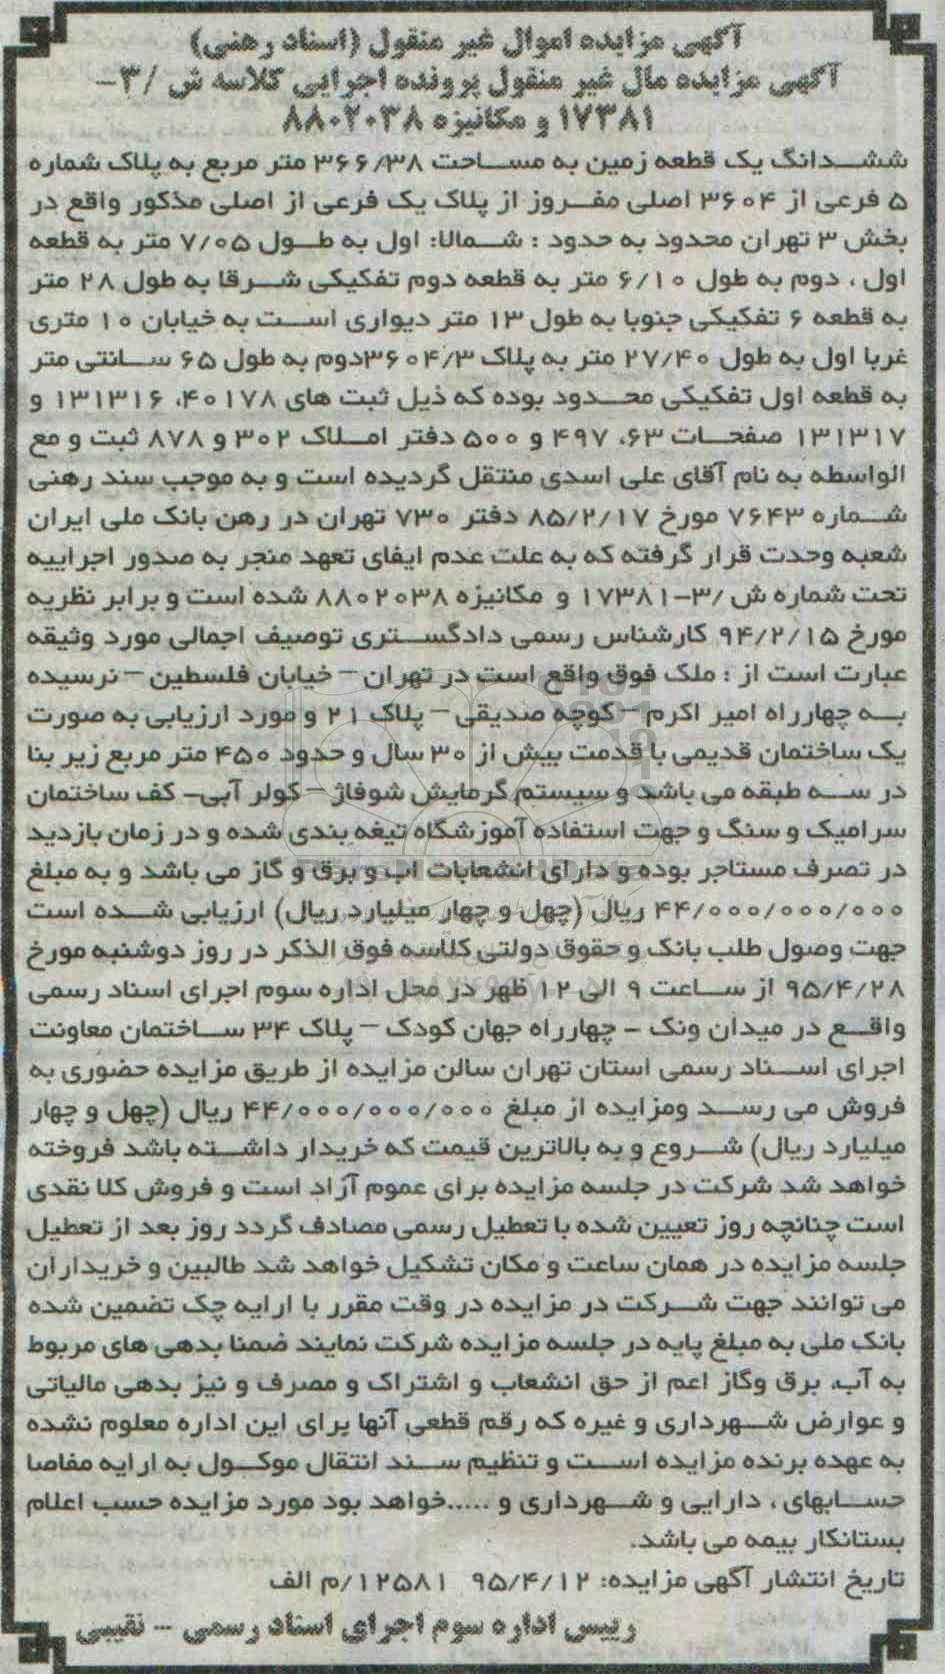 آگهی مزایده اموال غیر منقول (اسناد رهنی)
آگهی مزایده مال غیر منقول پرونده اجرایی کلاسه ش /۳-
۱۷۳۸۱ و مکانیزه ۸۸۰۲۰۳۸
ششدانگ یک قطعه زمین به مساحت ۳۶۶/۳۸ متر مربع به پلاک شماره
۵ فرعی از ۳۶۰۴ اصلی مفروز از پلاک یک فرعی از اصلی مذکور واقع در
بخش ۳ تهران محدود به حدود : شمالا: اول به طول ۷/۰۵ متر به قطعه
اول ، دوم به طول ۶/۱۰ متر به قطعه دوم تفکیکی شرقا به طول ۲۸ متر
به قطعه ۶ تفکیکی جنوبا به طول ۱۳ متر دیواری است به خیابان ۱۰ متری
غربا اول به طول ۲۷/۴۰ متر به پلاک ۳۶۰۴/۳دوم به طول ۶۵ سانتی متر
به قطعه اول تفکیکی محدود بوده که ذیل ثبت های ۴۰۱۷۸، ۱۳۱۳۱۶ و
۱۳۱۳۱۷ صفحات ۶۳، ۴۹۷ و ۵۰۰ دفتر املاک ۳۰۲ و ۸۷۸ ثبت و مع
الواسطه به نام آقای علی اسدی منتقل گردیده است و به موجب سند رهنی
شماره ۷۶۴۳ مورخ ۸۵/۲/۱۷ دفتر ۷۳۰ تهران در رهن بانک ملی ایران
شعبه وحدت قرار گرفته که به علت عدم ایفای تعهد منجر به صدور اجراییه
تحت شماره ش /۳-۱۷۳۸۱ و مکانیزه ۸۸۰۲۰۳۸ شده است و برابر نظریه
مورخ ۹۴/۲/۱۵ کارشناس رسمی دادگستری توصیف اجمالی مورد وثیقه
عبارت است از : ملک فوق واقع است در تهران – خیابان فلسطین – نرسیده
به چهارراه امیر اکرم – کوچه صدیقی – پلاک ۲۱ و مورد ارزیابی به صورت
یک ساختمان قدیمی با قدمت بیش از ۳۰ سال و حدود ۴۵۰ متر مربع زیر بنا
در سه طبقه می باشد و سیستم گرمایش شوفاژ – کولر آبی- کف ساختمان
سرامیک و سنگ و جهت استفاده آموزشگاه تیغه بندی شده و در زمان بازدید
در تصرف مستاجر بوده و دارای انشعابات اب و برق و گاز می باشد و به مبلغ
۴۴/۰۰۰/۰۰۰/۰۰۰ ریال (چهل و چهار میلیارد ریال) ارزیابی شده است
جهت وصول طلب بانک و حقوق دولتی کلاسه فوق الذکر در روز دوشنبه مورخ
۹۵/۴/۲۸ از ساعت ۹ الی ۱۲ ظهر در محل اداره سوم اجرای اسناد رسمی
واقع در میدان ونک - چهارراه جهان کودک – پلاک ۳۴ ساختمان معاونت
اجرای اسناد رسمی استان تهران سالن مزایده از طریق مزایده حضوری به
فروش می رسد ومزایده از مبلغ ۴۴/۰۰۰/۰۰۰/۰۰۰ ریال (چهل و چهار
میلیارد ریال) شروع و به بالاترین قیمت که خریدار داشته باشد فروخته
خواهد شد شرکت در جلسه مزایده برای عموم آزاد است و فروش کلا نقدی
است چنانچه روز تعیین شده با تعطیل رسمی مصادف گردد روز بعد از تعطیل
جلسه مزایده در همان ساعت و مکان تشکیل خواهد شد طالبین و خریداران
می توانند جهت شرکت در مزایده در وقت مقرر با ارایه چک تضمین شده
بانک ملی به مبلغ پایه در جلسه مزایده شرکت نمایند ضمنا بدهی های مربوط
به آب، برق وگاز اعم از حق انشعاب و اشتراک و مصرف و نیز بدهی مالیاتی
و عوارض شهرداری و غیره که رقم قطعی آنها برای این اداره معلوم نشده
به عهده برنده مزایده است و تنظیم سند انتقال موکول به ارایه مفاصا
حسابهای ، دارایی و شهرداری و .....خواهد بود مورد مزایده حسب اعلام
بستانکار بیمه می باشد.
تاریخ انتشار آگهی مزایده: ۹۵/۴/۱۲ ۱۲۵۸۱/م الف
رییس اداره سوم اجرای اسناد رسمی -- نقیبی